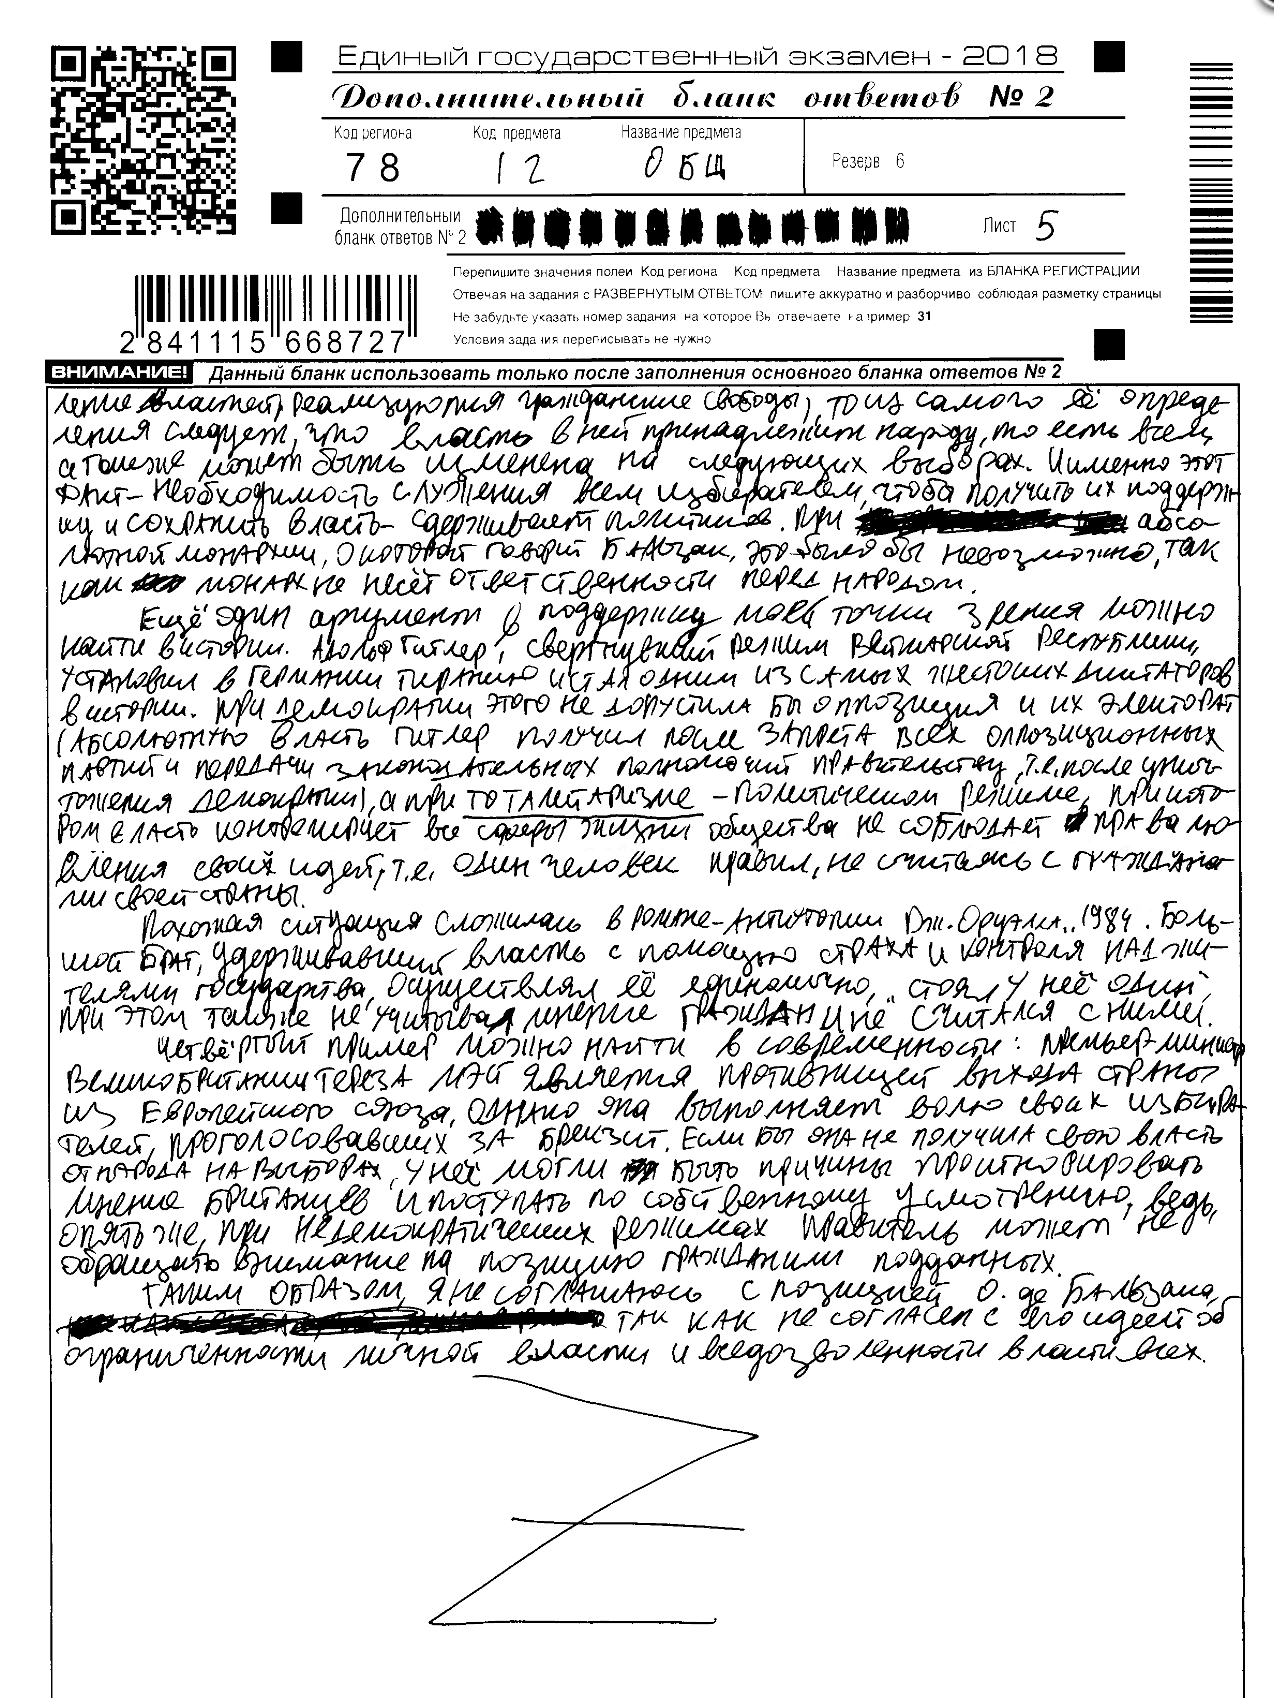 Единый государственный экзамен - 2018
Дополнительный бланк ответов № 2
Код региона Код предмета Название предмета
78 12 ОБЩ Резерв 6
Дополнительный
бланк ответов № 2 Лист 5
Перепишите значения полей Код региона Код предмета Название предмета из БЛАНКА РЕГИСТРАЦИИ
Отвечая на задания с РАЗВЕРНУТЫМ ОТВЕТОМ пишите аккуратно и разборчиво соблюдая разметку страницы
Не забудьте указать номер задания на которое Вы отвечаете например 31
Условия задания переписывать не нужно
2841115668727
ВНИМАНИЕ! Данный бланк использовать только после заполнения основного бланка ответов № 2
ление властей, реализуются гражданские свободы), то из самого её опреде-
ления следует, что власть в ней принадлежит народу, то есть всем,
а также может быть изменена на следующих выборах. Именно этот
факт - необходимость служения всем избирателем, чтобы получить их поддерж-
ку и сохранить власть - сдерживает политиков. При абсо-
лютной монархии, о которой говорит Бальзак, это было бы невозможно, так
как монарх не несёт ответственности перед народом.
Ещё один аргумент в поддержку моей точки зрения можно
найти в истории. Адольф Гитлер, свергнувший режим Веймарской Республики,
установил в Германии тиранию и стал одним из самых жестоких диктаторов
в истории. При демократии этого не допустила бы оппозиция и их электорат
(абсолютную власть Гитлер получил после запрета всех оппозиционных
партий и передачи законодательных полномочий правительству, т.е. после унич-
тожения демократии), а при тоталитаризме - политическом режиме, при кото-
ром власть контролирует все сферы жизни общества не соблюдает права
вления своих идей, т.е. один человек правил, не считаясь с граждана-
ми своей страны.
Похожая ситуация сложилась в романе-антиутопии Дж. Оруэлла „1984. Боль-
шой Брат, удерживавший власть с помощью страха и контроля над жи-
телями государства, осуществлял её единолично, „стоял у неё один",
при этом также не учитывая мнение граждан и не считался с ними.
Четвёртый пример можно найти в современности: премьер-министр
Великобритании Тереза Мэй является противницей выхода страны
из Европейского союза, однако она выполняет волю своих избира-
телей, проголосовавших за Брекзит. Если бы она не получила свою власть
от народа на выборах, у неё могли быть причины проигнорировать
мнение британцев и поступать по собственному усмотрению, ведь,
опять же, при недемократических режимах правитель может не
обращать внимание на позицию граждан или подданных.
Таким образом, я не соглашаюсь с позицией О. де Бальзака,
так как не согласен с его идеей об
ограниченности личной власти и вседозволенности власти всех.